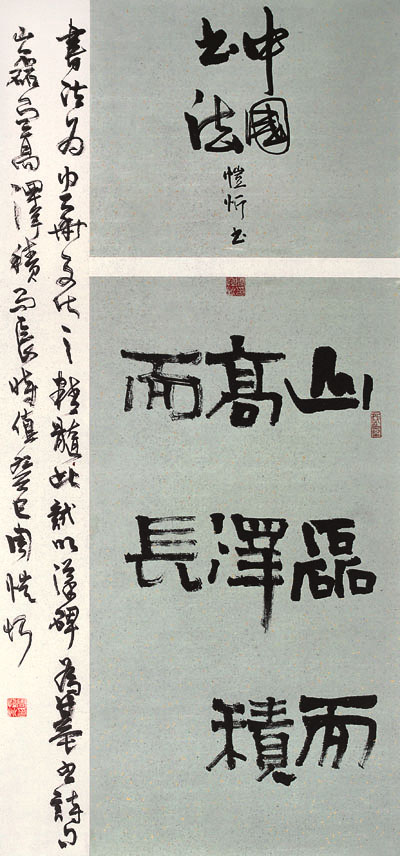 中國
书法
愷忻书
山磊而
高澤積
而長
書法为中華文化之精髓此試以漢碑為基书詩句
山磊而高澤積而長時值癸巳周愷忻